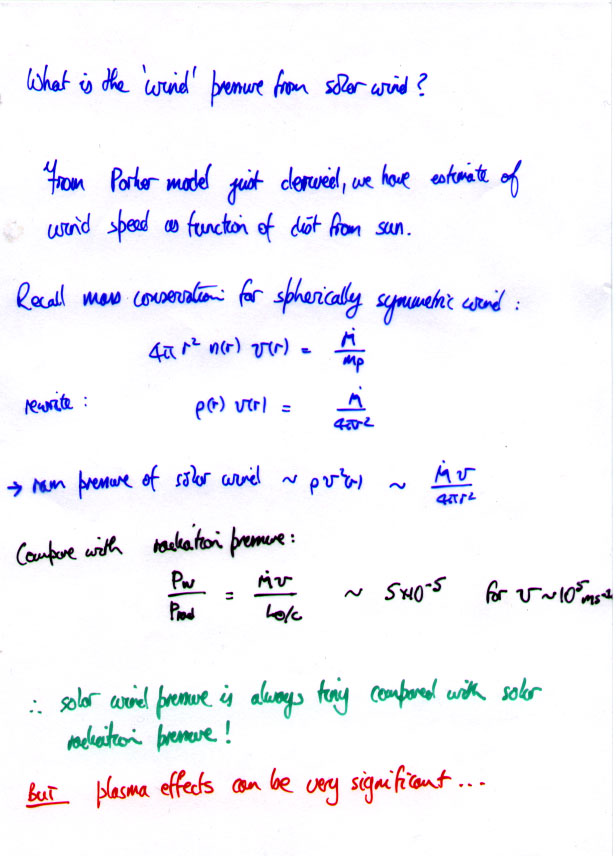 What is the 'wind' pressure from solar wind?
From Parker model just derived, we have estimate of
wind speed as function of dist from sun.
Recall mass conservation for spherically symmetric wind:
4π r² n(r) v(r) = Ṁ / mp
rewrite: ρ(r) v(r) = Ṁ / 4πr²
→ ram pressure of solar wind ~ ρv²(r) ~ Ṁv / 4πr²
Compare with radiation pressure:
Pw / Prad = Ṁv / L⊙/c ~ 5×10⁻⁵ for v~10⁵ ms⁻¹
∴ solar wind pressure is always tiny compared with solar
radiation pressure!
BUT plasma effects can be very significant...